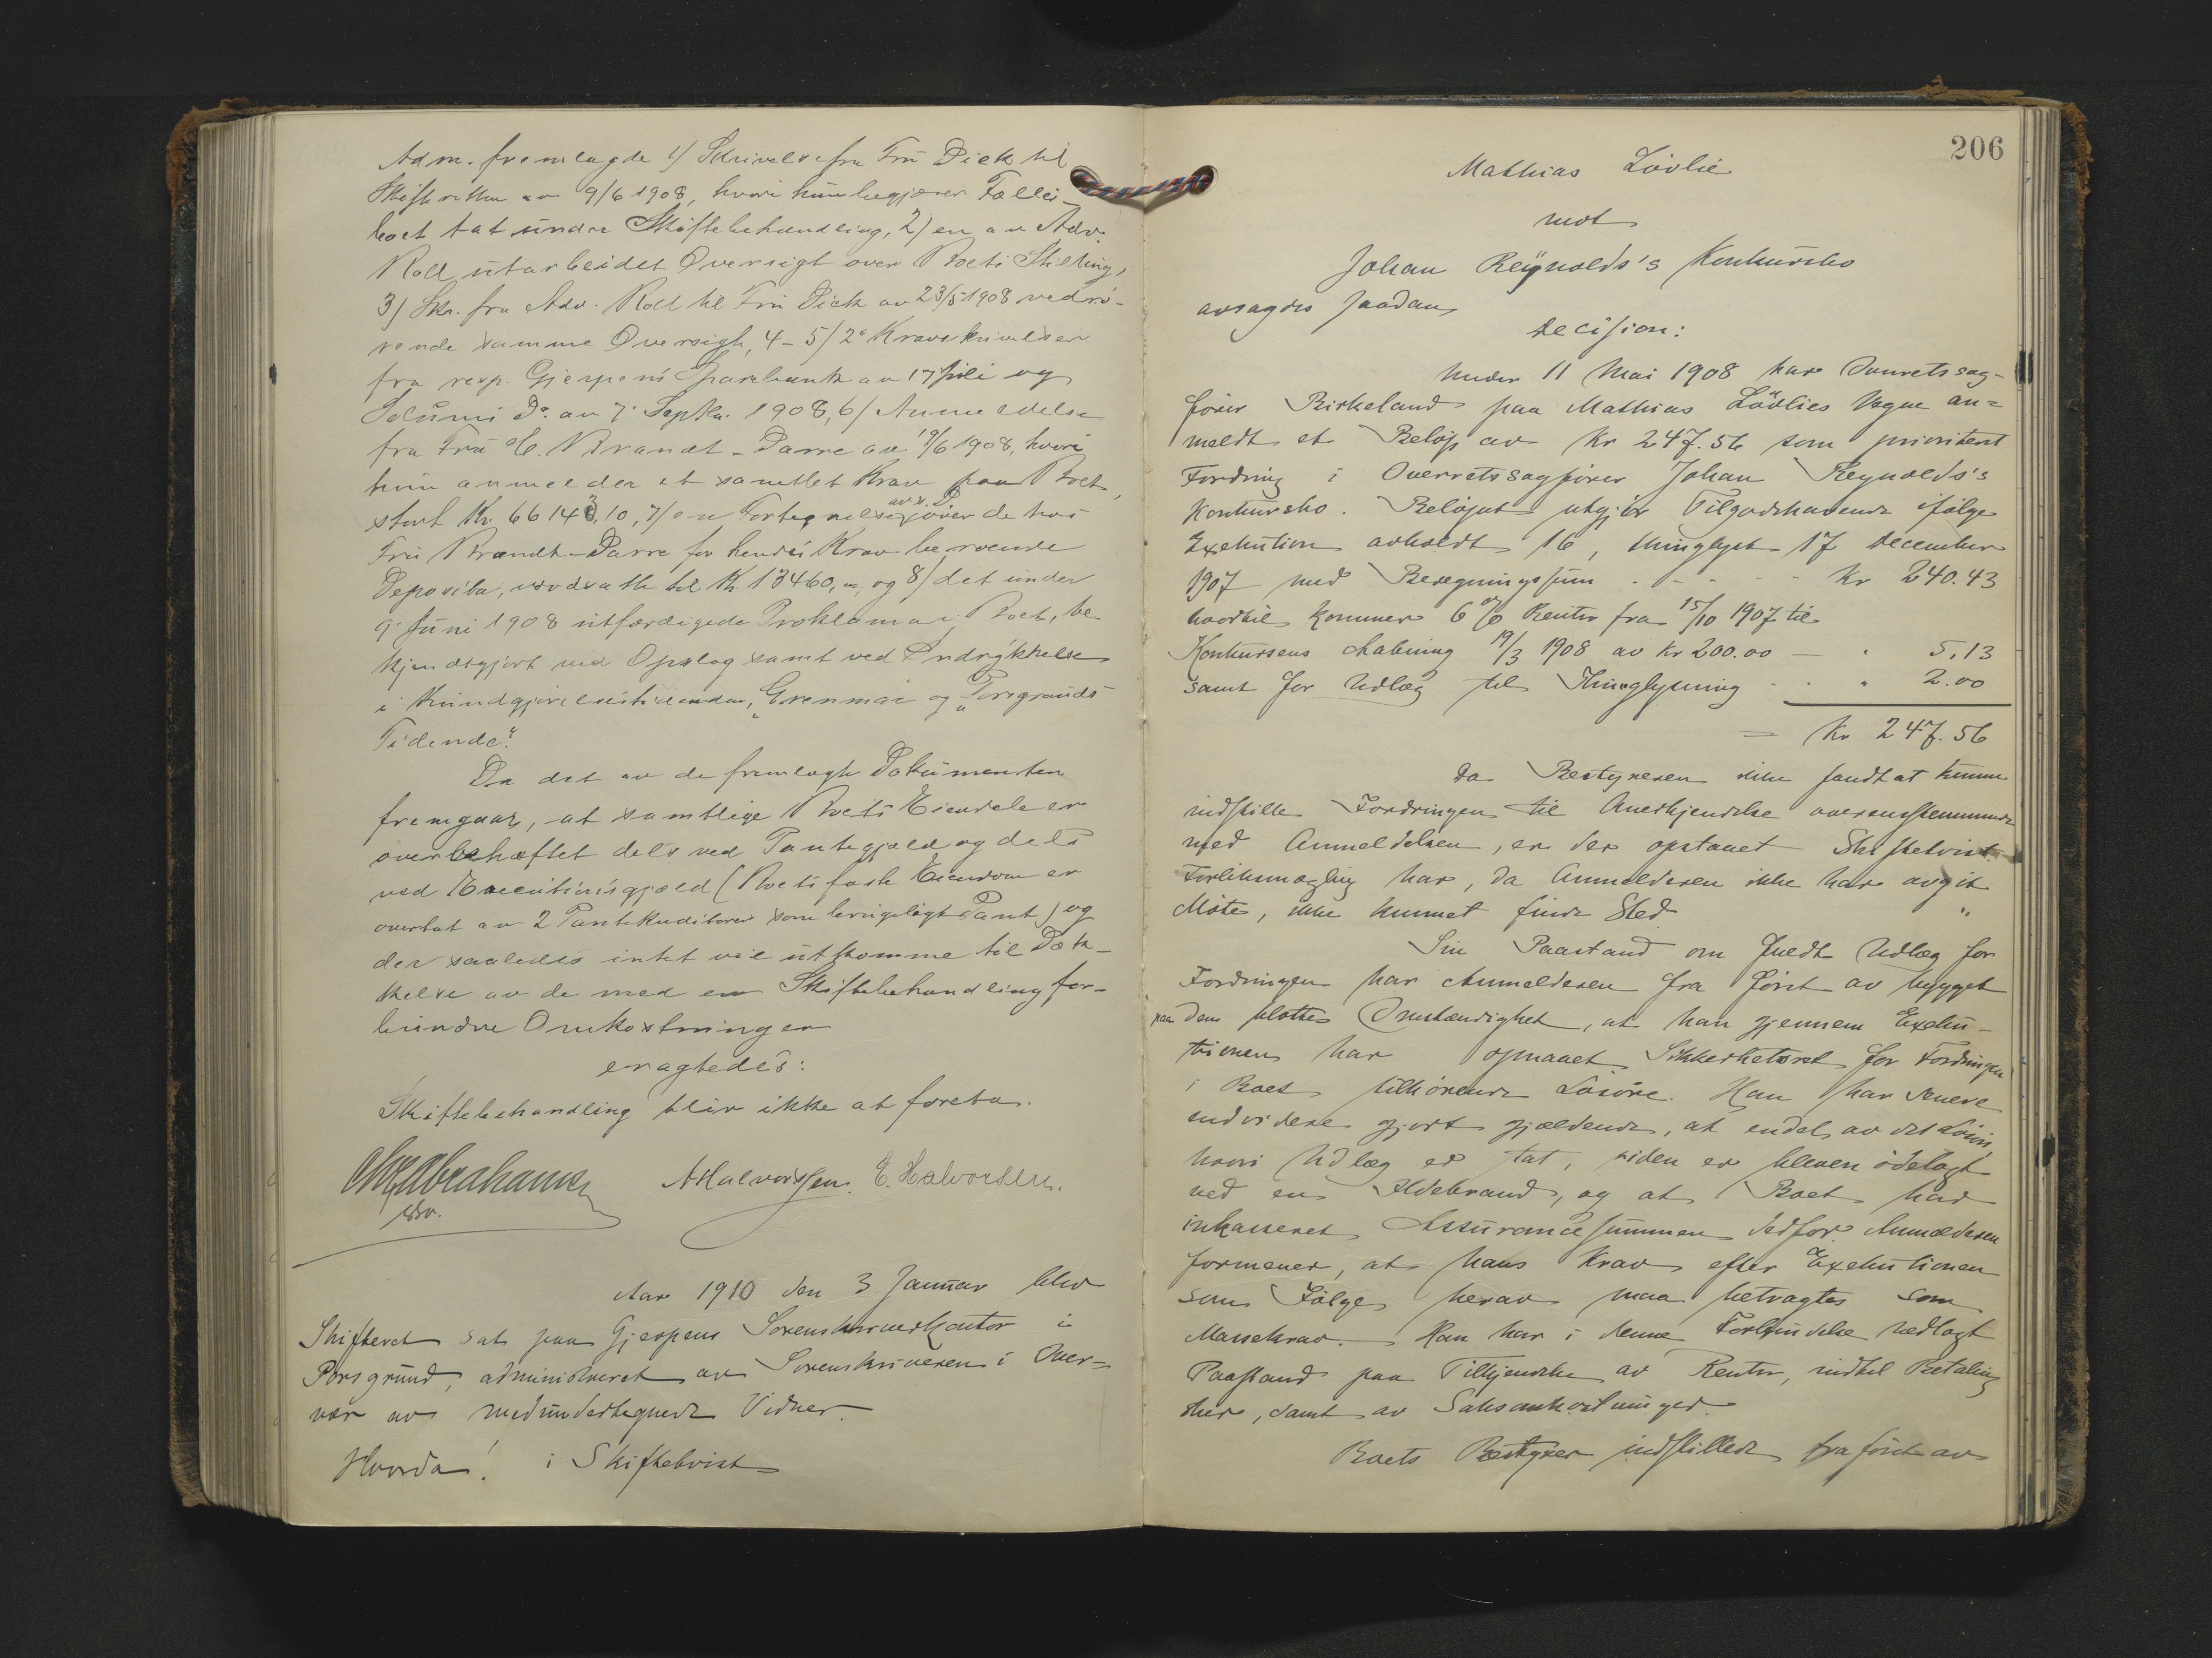 Adm. fremlagde 1) Skrivelse fra Fru Dick til
Skifteretten av 9/6 1908, hvori hun begjærer Fælles-
boet tat under Skiftebehandling, 2) en av Adv.
Roll utarbeidet Oversigt over Boets Stilling,
3) Skr. fra Adv. Roll til Fru Dick av 23/5 1908 vedrø-
rende samme Oversigt, 4-5) 2de Kravskrivelser
fra resp. Gjerpens Sparebank av 17 Juli og
Solums Do. av 7. Septbr. 1908, 6) Anmeldelse
fra Fru C. Brandt-Darre av 19/6 1908, hvori
hun anmelder et samtlet Krav paa Boet,
stort Kr. 66143,10, 7) en Fortegnelse over de hos
Fru Brandt-Darre for hendes Krav beroende
Deposita, værdsatte til Kr. 13460, og 8) det under
9. Juni 1908 utfærdigede Proklama i Boet, be-
kjendtgjort ved Opslag samt ved Indrykkelse
i Kundgjørelsestidenden, "Grenmar" og "Porsgrunds
Tidende".
Da det av de fremlagte Dokumenter
fremgaar, at samtlige Boets Eiendele er
overbehæftet dels ved Pantegjæld og dels
ved Executionsgjæld (Boets faste Eiendom er
overtat av 2 Pantekreditorer som brukeligt Pant) og
der saaledes intet vil utkomme til Dæk-
kelse av de med en Skiftebehandling for-
bundne Omkostninger
eragtedes:
Skiftebehandling blir ikke at foreta.
Abrahamsen A Halvorssen. E. Halvorsen.
Aar 1910 den 3 Januar blev
Skifteret sat paa Gjerpens Sorenskriverkontor i
Porsgrund, administreret av Sorenskriveren i Over-
vær av medundertegnede Vidner.
Hvorda! i Skiftetvist
206
Mathias Lövlie
mot
Johan Reynolds's Konkursbo
avsagdes saadan
Decision:
Under 11 Mai 1908 har Overretssag-
fører Birkeland paa Mathias Lövlies Vegne an-
meldt et Beløp av Kr 247.56 som prioritert
Fordring i Overretssagfører Johan Reynolds's
Konkursbo. Beløpet utgjör Tilgodehavende ifølge
Exekution avholdt 16, thinglyst 17 December
1907 med Beregningssum - - - - Kr 240.43
hvortil kommer 6 % Renter fra 15/10 1907 til
Konkursens Aabning 19/3 1908 av Kr 200.00 — " 5.13
samt for Utlæg til Thinglysning - - " 2.00
= Kr 247.56
Da Bestyreren ikke fandt at kunne
indstille Fordringen til Anerkjendelse overensstemmende
med Anmeldelsen, er der opstaaet Skiftetvist.
Forliksmægling har, da Anmelderen ikke har avgit
Møte, ikke kunnet finde Sted.
Sin Paastand om fuldt Udlæg for
Fordringen har Anmelderen fra først av bygget
paa den blotte Omstændighet, at han gjennem Exeku-
tionen har opnaaet Sikkerhetsret for Fordringen
i Boet tilhørende Løsøre. Han har senere
endvidere gjort gjældende, at endel av det Løsøre
hvori Udlæg er tat, siden er bleven ødelagt
ved en Ildebrand, og at Boet har
inkasseret Assurancesummen derfor. Anmelderen
formener, at hans Krav efter Exekutionen
som Følge herav maa betragtes som
Massekrav. Han har i denne Forbindelse nedlagt
Paastand paa Tilkjendelse av Renter, indtil Betaling
sker, samt av Saksomkostninger.
Boets Bestyrer indstillede fra først av